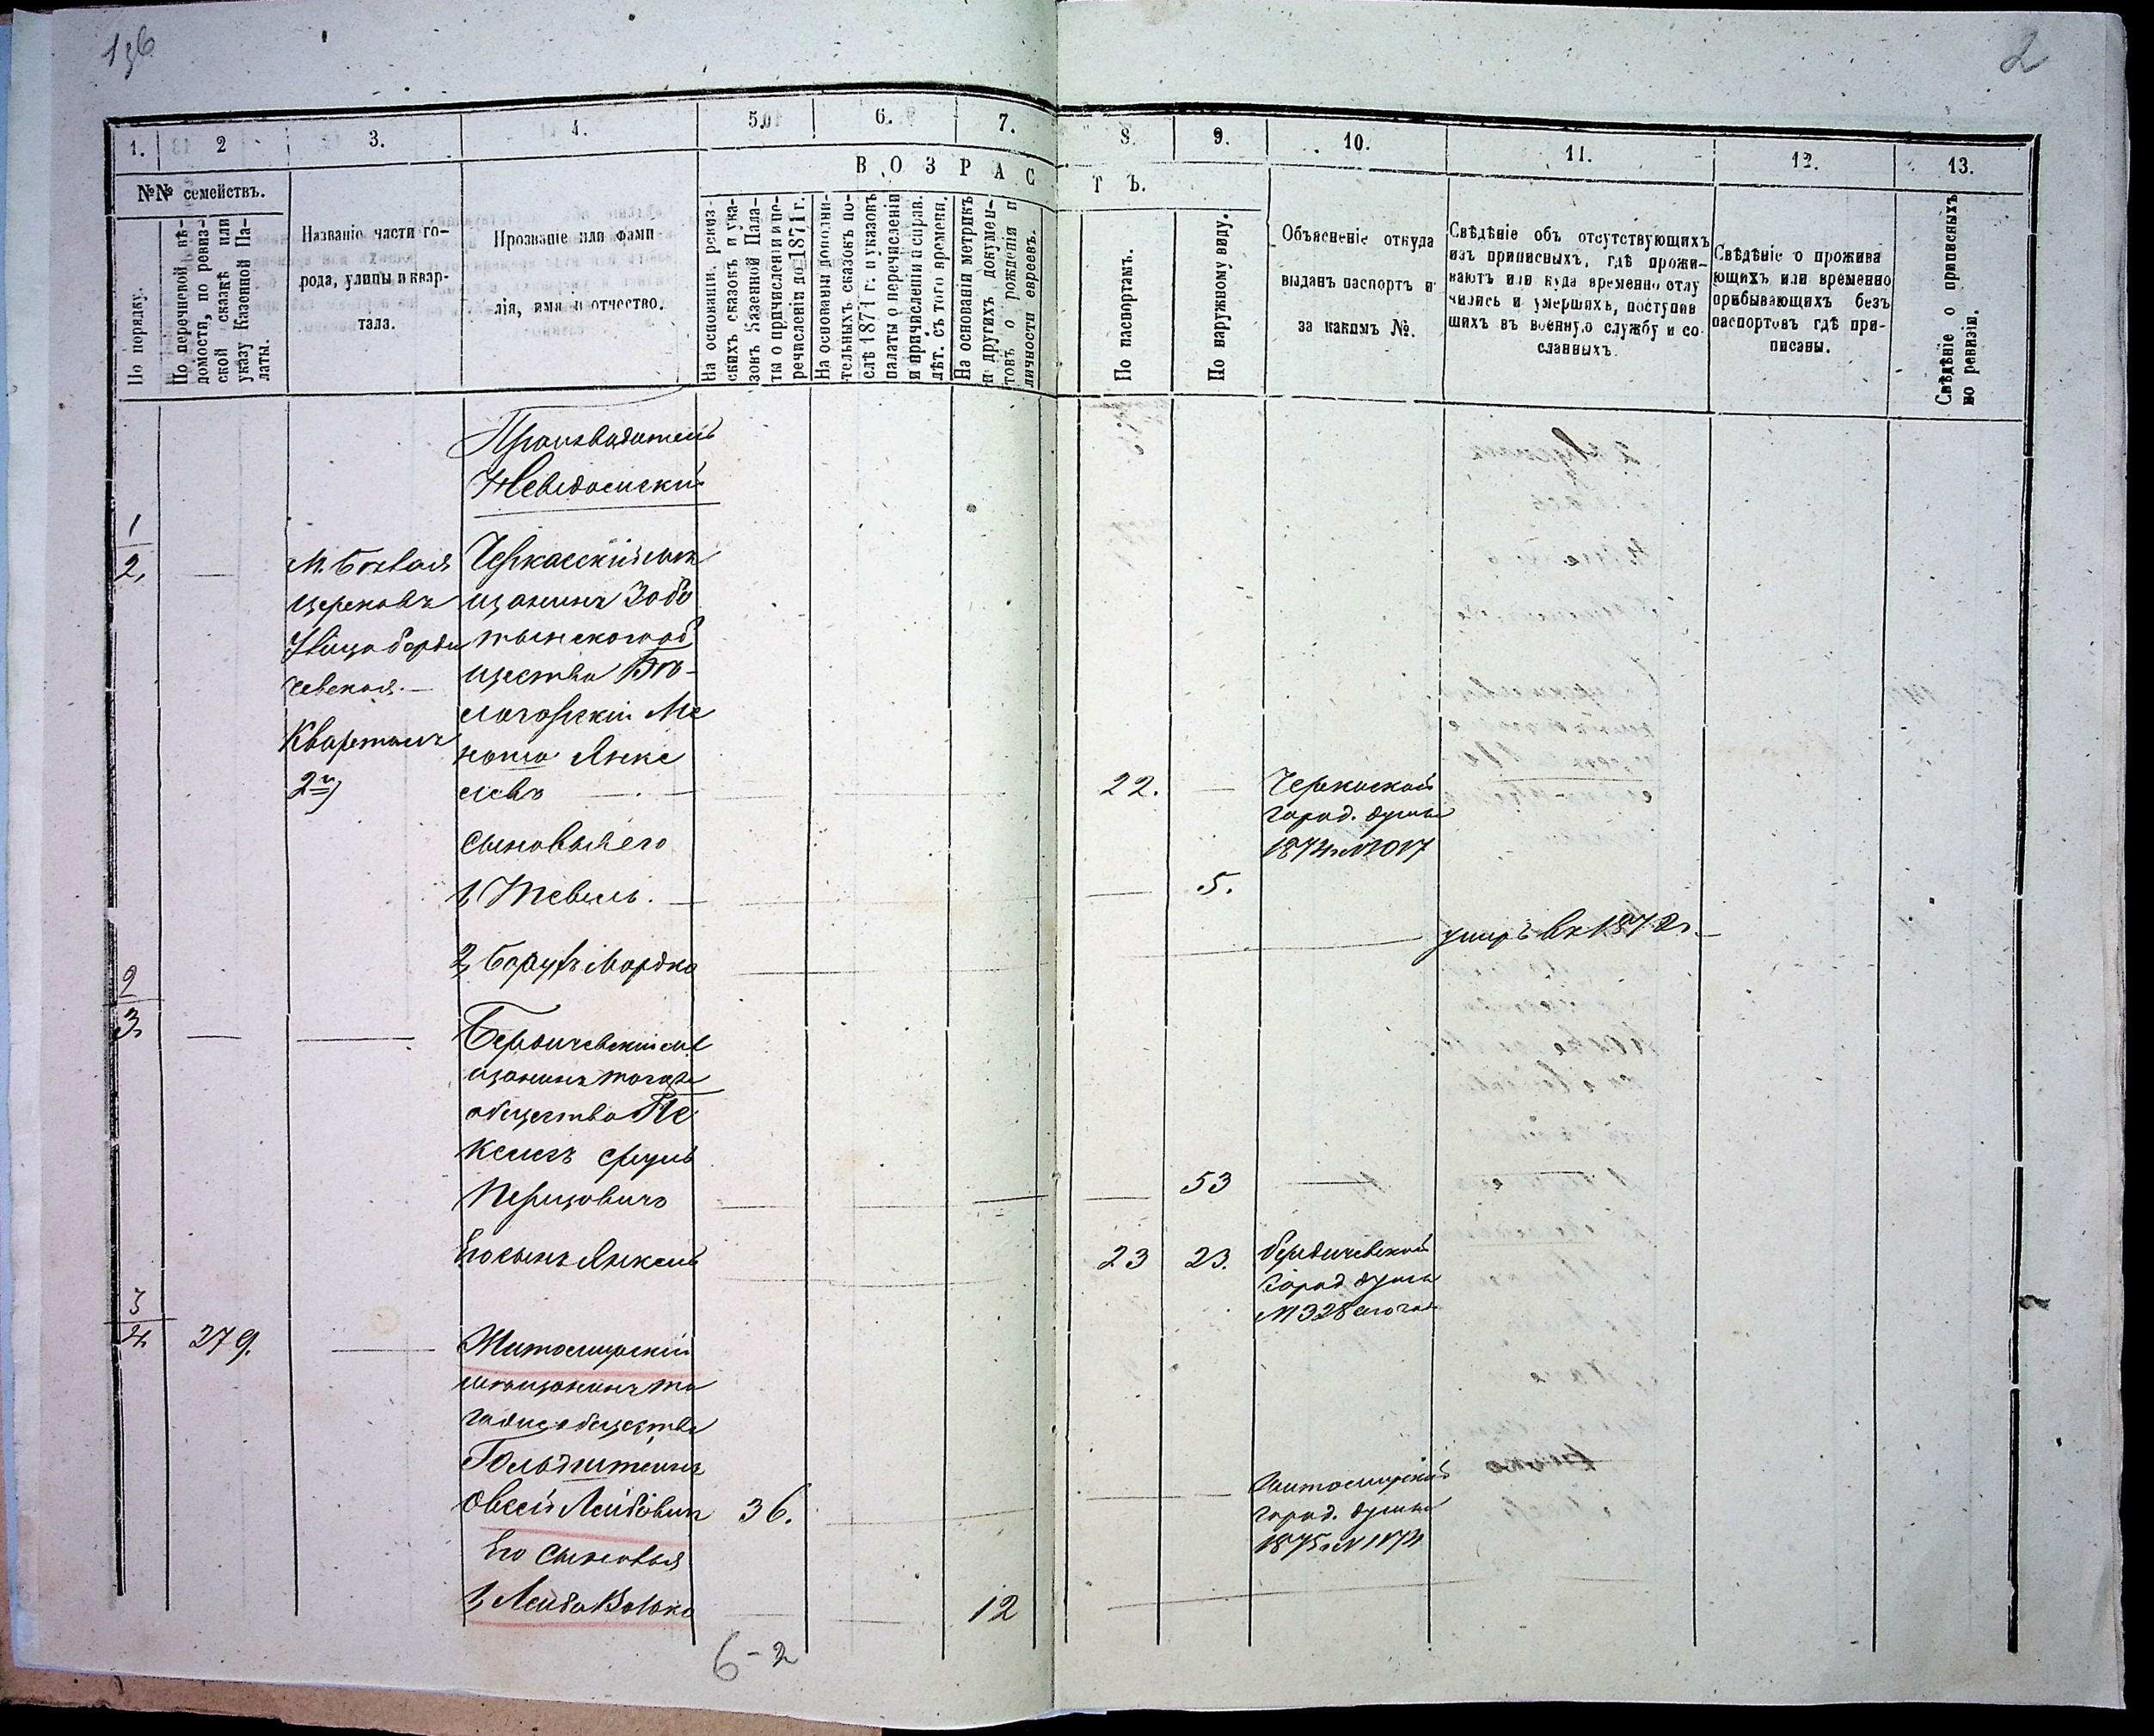 136
2
1.
2
3.
4.
5.
6.
7.
8.
9.
10.
11.
12.
13.
№№ семействъ.
В О З Р А С Т Ъ.
По порядку.
По перечневой вѣ-
домости, по ревиз-
ской сказкѣ или
указу Казенной Па-
латы.
Названіе части го-
рода, улицы и квар-
тала.
Прозваніе или фами
лія, имя и отчество.
На основаніи ревиз-
скихъ сказокъ и ука-
зовъ Казенной Пала-
ты о причисленіи и пе-
речисленіи до 1871 г.
На основаніи дополни-
тельныхъ сказокъ по-
слѣ 1871 г. и указовъ
палаты о перечисленіи
и причисленіи и справ.
лѣт. съ того времени.
На основаніи метрикъ
и другихъ докумен-
товъ о рожденіи и
личности евреевъ.
По паспортамъ.
По наружному виду.
Объясненіе откуда
выданъ паспортъ и
за какимъ №.
Свѣдѣніе объ отсутствующихъ
изъ приписныхъ, гдѣ прожи-
ваютъ или куда временно отлу
чились и умершихъ, поступив
шихъ въ военную службу и со
сланныхъ.
Свѣдѣніе о прожива
ющихъ или временно
прибывающихъ безъ
паспортовъ гдѣ при-
писаны.
Свѣдѣніе о приписныхъ
по ревизіи.
Производитель
1
2,
М. Бѣлая
Церковь
Улица Берди
чевская.
Кварталъ
2й
Черкасскій мѣщ
анинъ Золо
тынского об
щества Бѣло-
Янке
левъ
22.
Черкаской
город. думы
Сыновья его
1, Тевель.
5.
2, Борухъ Мордко
умеръ въ 1872 г.
2
3,
Бердичевскій мѣ
щанинъ того же
общества Пе
Сруль
Перцовичъ
53
Его сынъ Янкель
23
23.
Бердичевской
город думы
№ 328 сего года
3
4,
279.
Житомирскій
мѣщанинъ то
го же общества
Гольдштейнъ
Овсей Лейбовичъ
36.
Житомирской
город. думы
1875 г № 1174
Его сыновья
1, Лейба Волько
12
6-2